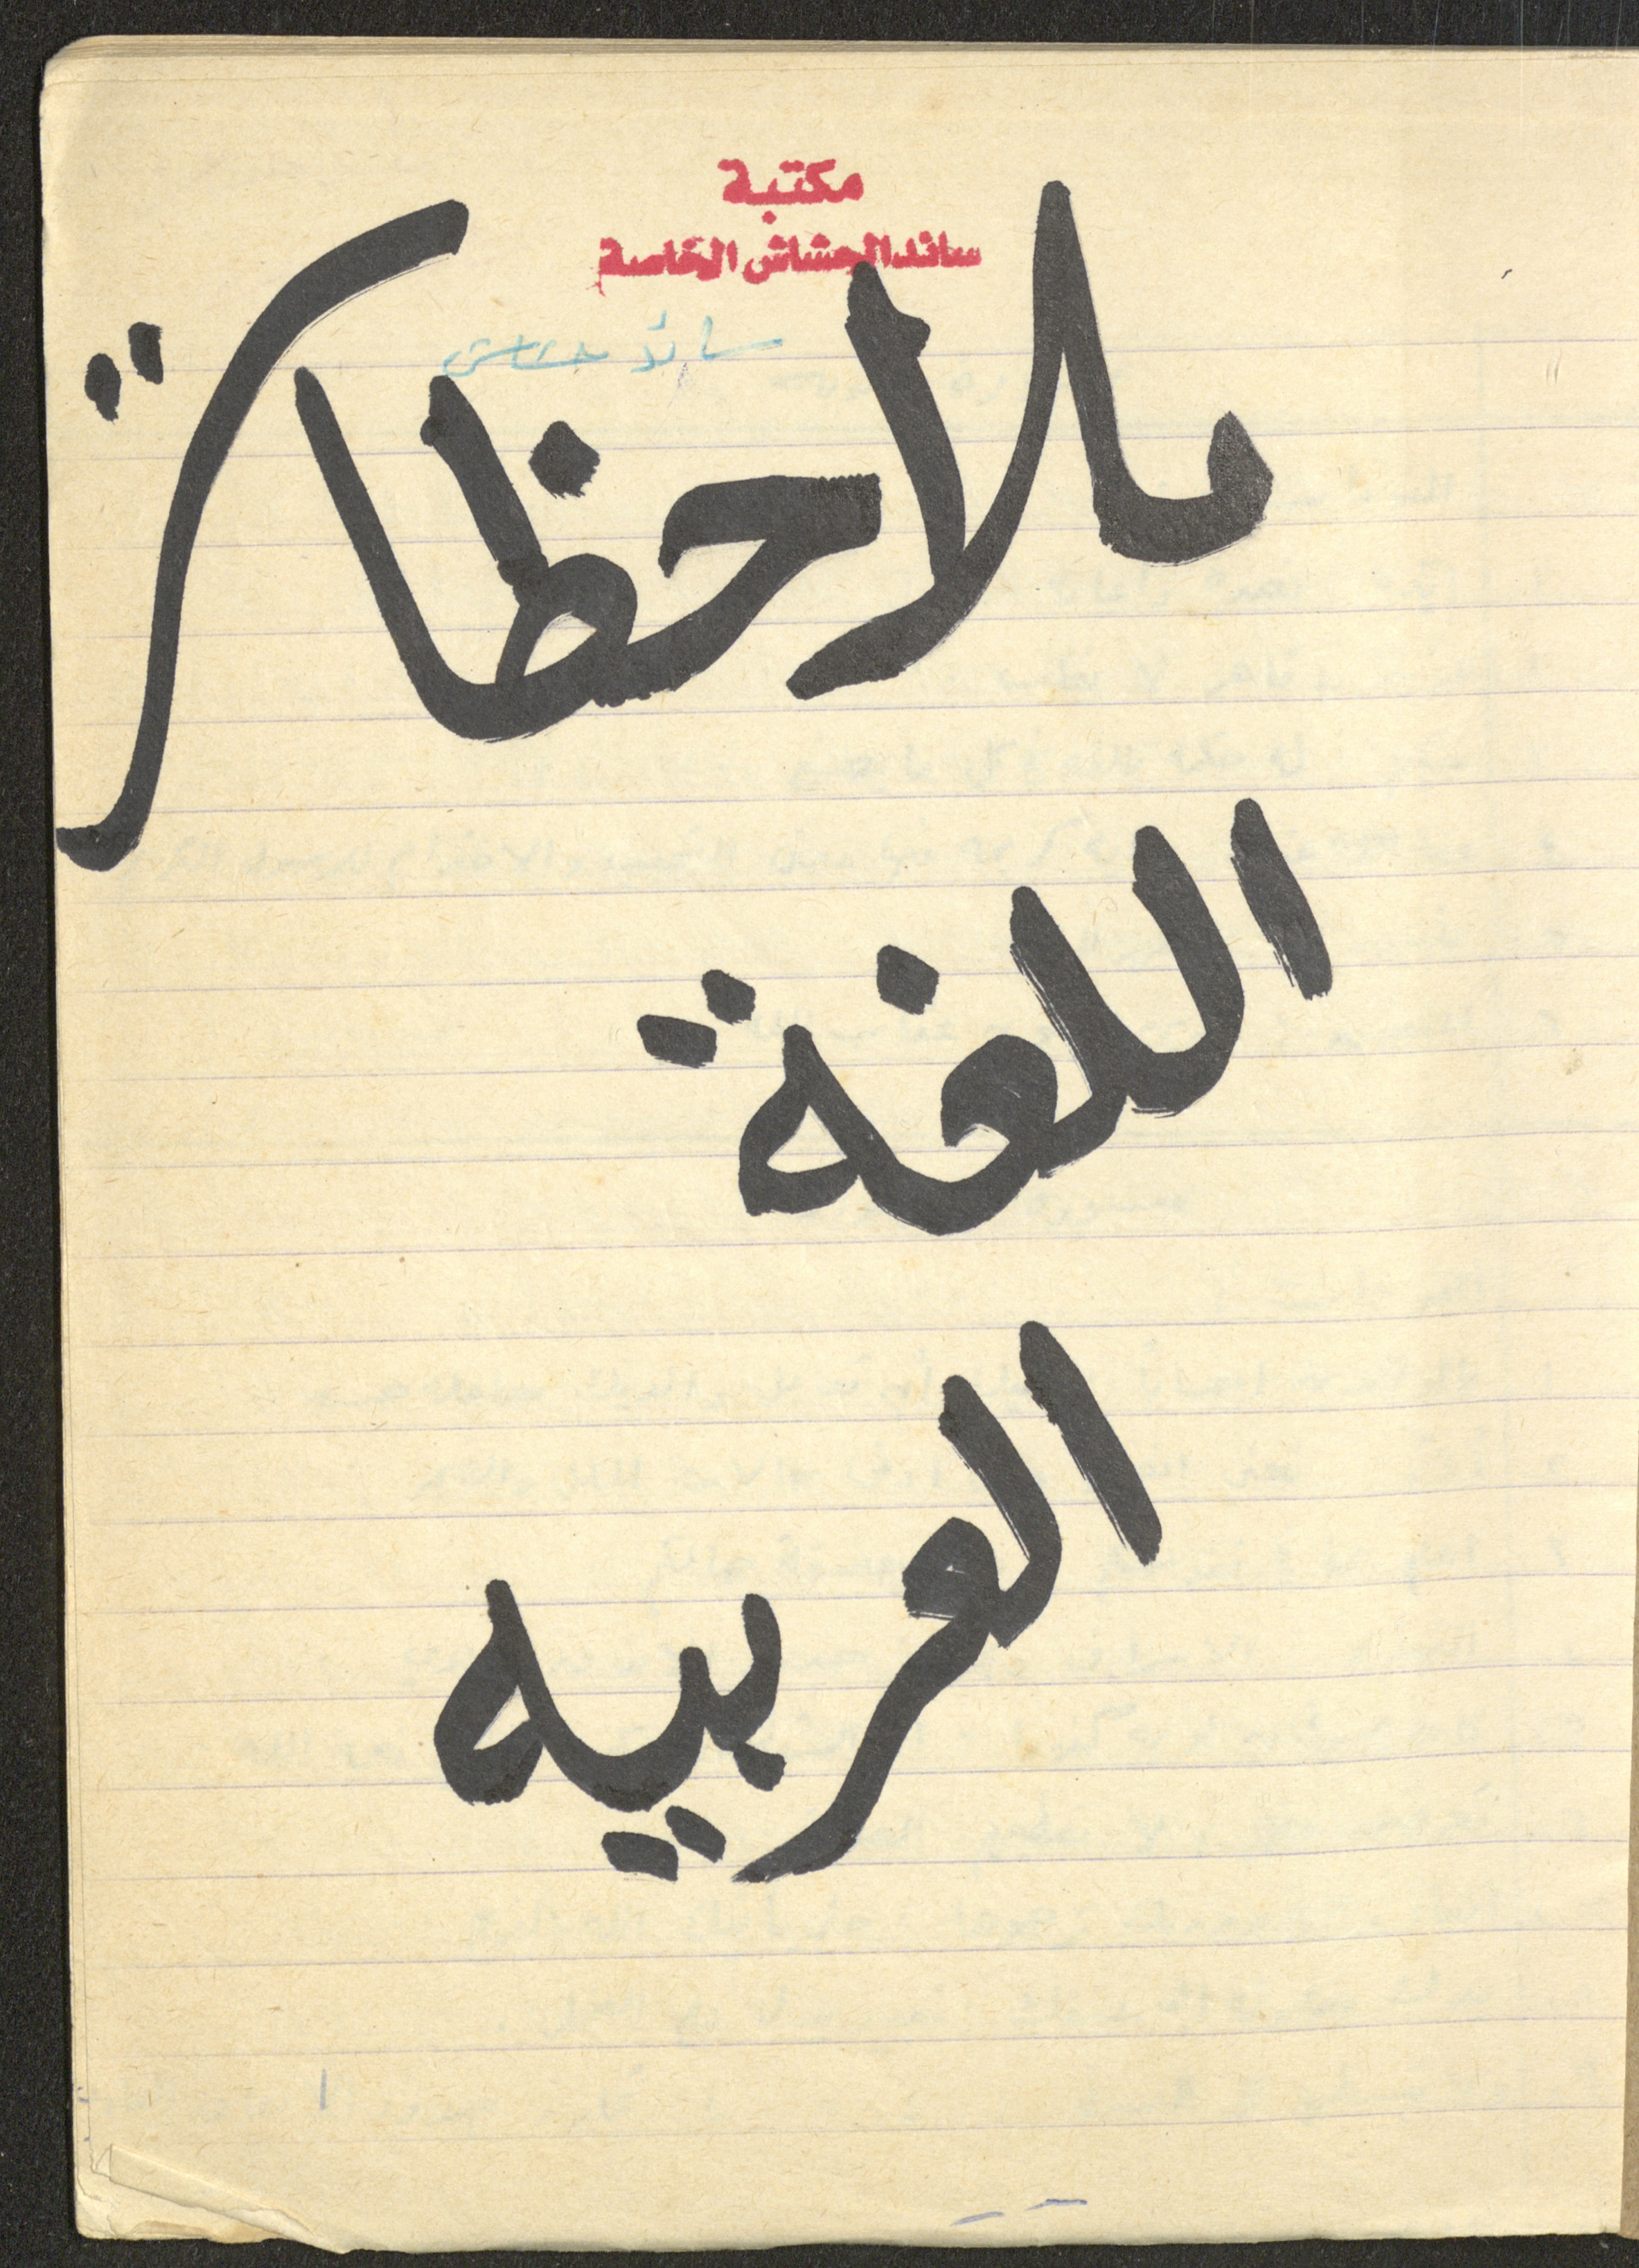 مكتبة
سائد الحشاش الخاصة
سائد حشاش
ملاحظات
اللغة
العربيه